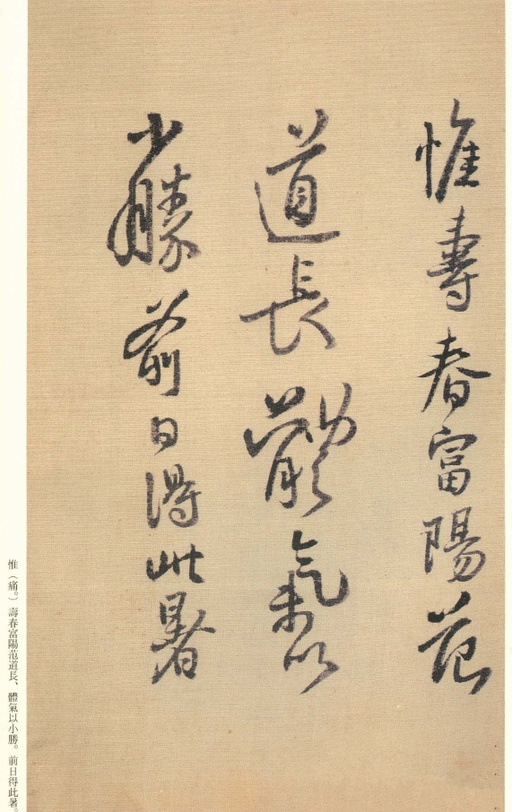 惟壽春富陽范
道長體氣以
少勝前日得此暑
惟（痛。）壽春富陽范道長、體氣以小勝。前日得此署。